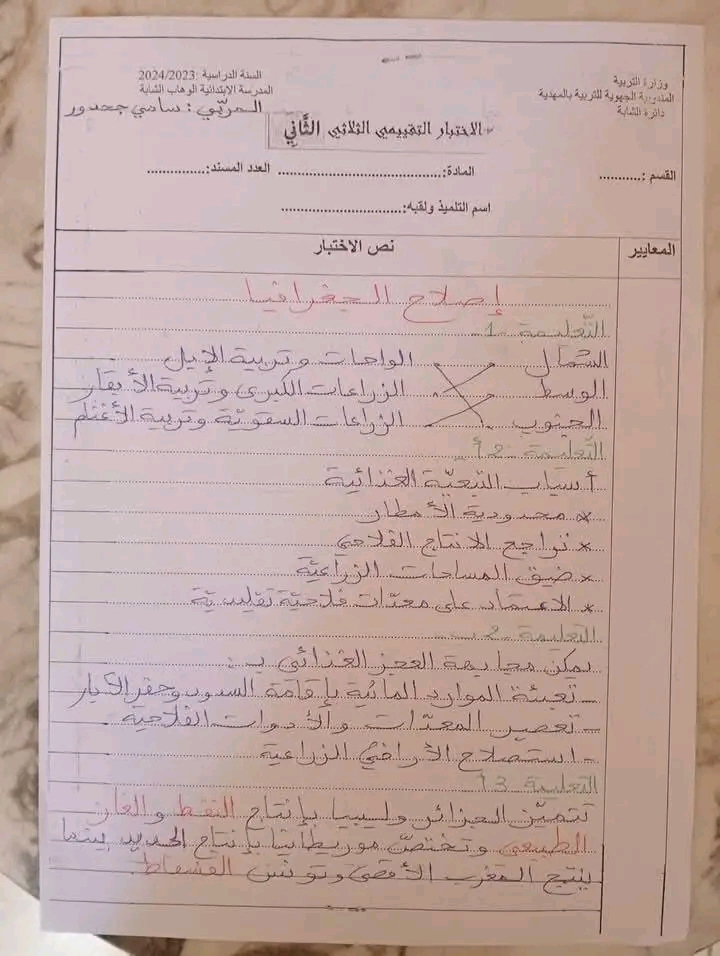 وزارة التربية
المندوبية الجهوية للتربية بالمهدية
دائرة الشابة
السنة الدراسية :2024/2023
المدرسة الابتدائية الوهاب الشابة
المربّي : سامي جحدور
الاختبار التقييمي الثلاثي الثّاني
القسم :........... المادة:....................................... العدد المسند:..............
اسم التلميذ ولقبه:.............................
المعايير
نص الاختبار
إصلاح الجغرافيا
التّعليمة 1
الشمال الواحات وتربية الإبل
الوسط الزراعات الكبرى وتربية الأبقار
الجنوب الزراعات السقويّة وتربية الأغنام
التّعليمة 2 أ
أسباب التبعيّة الغذائية
× محدودية الأمطار
× تراجع الانتاج الفلاحي
× ضيق المساحات الزراعيّة
× الاعتماد على معدّات فلاحيّة تقليديّة
التعليمة 2 ب
يمكن مجابهة العجز الغذائي بـ :
- تعبئة الموارد المائية بإقامة السدود وحفر الآبار
- تعصير المعدّات والأدوات الفلاحية
- استصلاح الأراضي الزراعية
التعليمة 3 أ
تتميّز الجزائر وليبيا بإنتاج النفط والغاز
الطبيعي وتختصّ موريطانيا بإنتاج الحديد بينما
ينتج المغرب الأقصى وتونس الفسفاط.